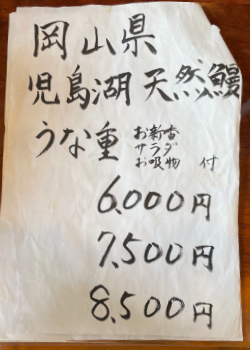 岡山県
児島湖 天然鰻
うな重 お新香
サラダ
お吸物 付
6,000円
7,500円
8,500円